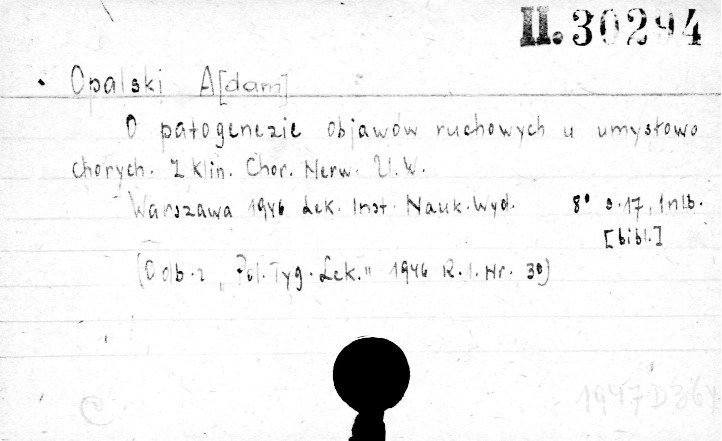 II. 30294
Opalski A[dam]
O patogenezie objawów ruchowych u umysłowo
chorych. Z Klin. Chor. Nerw. U.W.
Warszawa 1946 Lek. Inst. Nauk. Wyd. 8° s. 17, 1 nlb.
[bibl.]
(Odb. z „Pol. Tyg. Lek." 1946 R.1. Nr. 30)
C
1947 D 364